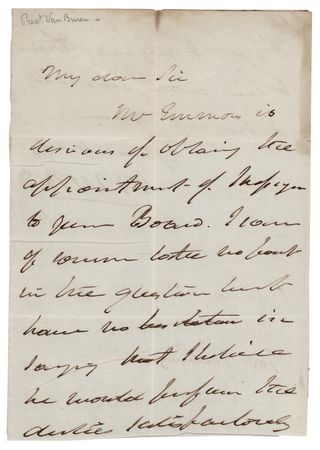 Prest Van Buren -
My dear Sir
Mr Emmons is
desirous of obtaing the
appointment of
to your Board. I can
of course take no part
in the question but
have no hesitation in
saying that I believe
he would perform the
duties satisfactorily